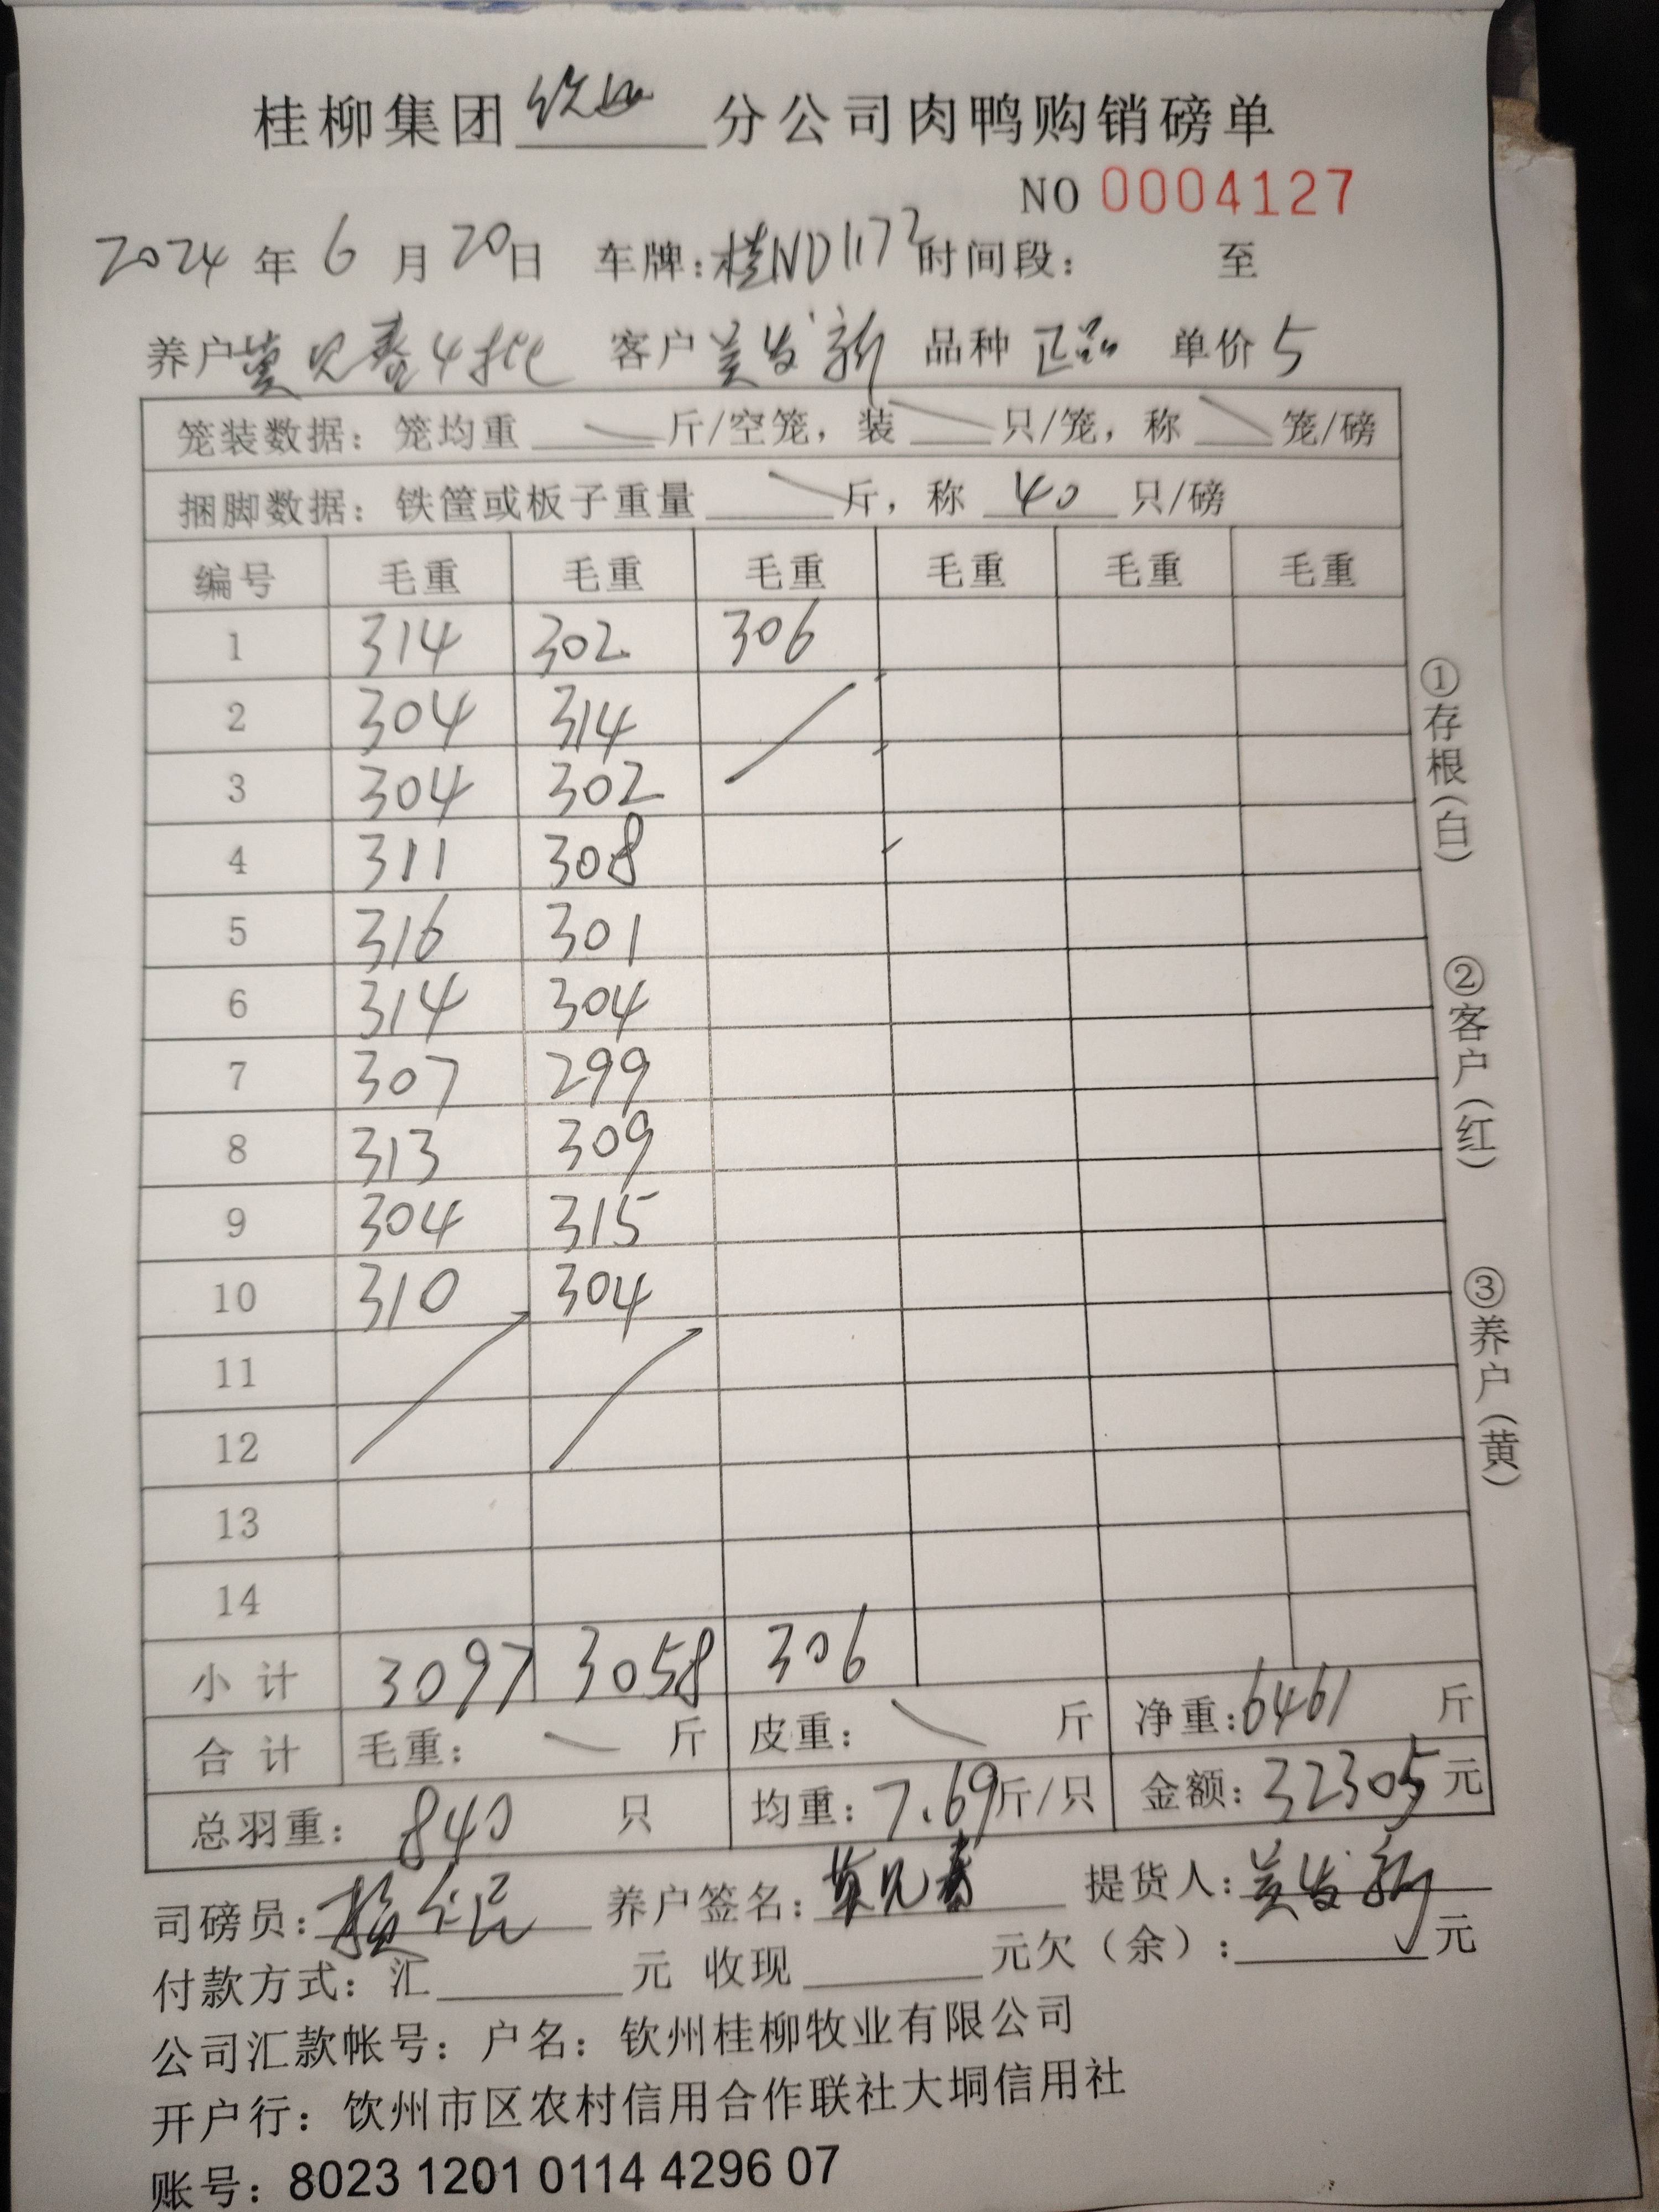 桂柳集团钦州分公司肉鸭购销磅单
NO 0004127
2024年6月20日 车牌:桂ND1172时间段: 至
养户莫见春4批 客户 发新 品种 正品 单价 5
笼装数据: 笼均重 斤/空笼, 装 只/笼, 称 笼/磅
捆脚数据: 铁筐或板子重量 斤, 称 40 只/磅
编号 毛重 毛重 毛重 毛重 毛重 毛重
1 314 302 306
2 304 314
3 304 302
4 311 308
5 316 301
6 314 304
7 307 299
8 313 309
9 304 315
10 310 304
11
12
13
14
小计 3097 3058 306
合计 毛重: 斤 皮重: 斤 净重:6461 斤
总羽重: 840 只 均重: 7.69斤/只 金额: 32305元
司磅员: 养户签名:莫见春 提货人: 发新
付款方式: 汇 元 收现 元欠(余): 元
公司汇款帐号: 户名: 钦州桂柳牧业有限公司
开户行: 钦州市区农村信用合作联社大垌信用社
账号: 8023 1201 0114 4296 07
①存根(白)
②客户(红)
③养户(黄)